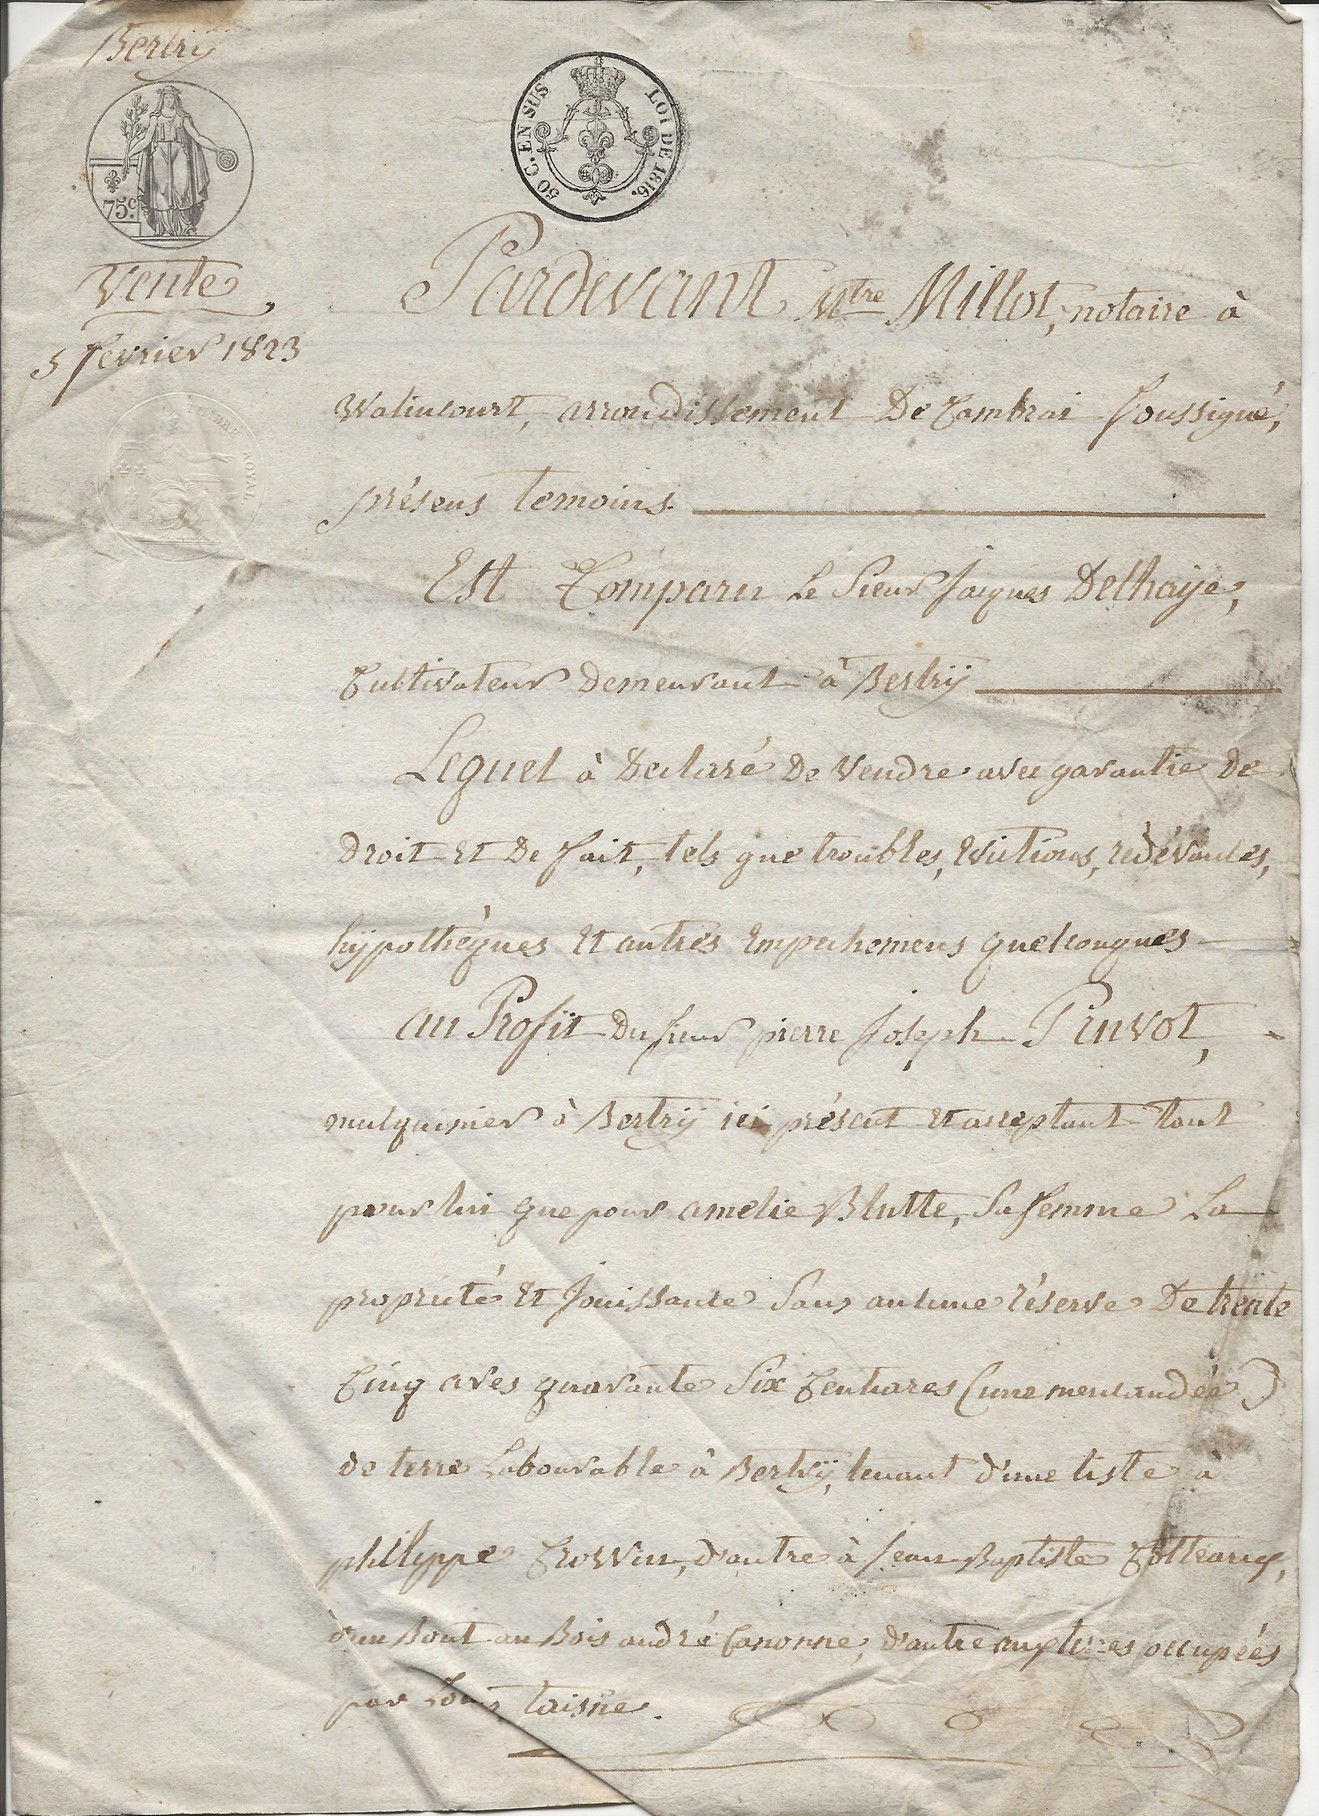 Bertry
50 C. EN SUS
LOI DE 1816.
75c.
Vente
5 fevrier 1823
TIMBRE ROYAL
Pardevant Mtre Millot, notaire à
Walincourt, arrondissement De Cambrai Soussigné,
présens temoins.
Est Comparu Le Sieur Jacques Delhaye,
Cultivateur demeurant à Bertrÿ
Lequel à Déclaré De Vendre avec garantie de
droit et De fait, tels que troubles, Evictions, redévances,
hÿpothèques Et autres Empechemens quelconques
au Profit Du Sieur pierre Joseph Pruvot,
mulquinier à Bertrÿ ici présent Et acceptant tant
pour lui que pour amelie Blutte, Sa femme La
propriété Et Jouissance Sans aucune réserve De trente
Cinq ares quarante Six Centiares (une mencaudée)
de terre Labourable à Bertrÿ, tenant d'une liste à
philippe Crowin, d'autre à Jean Baptiste
d'un Bout au Bois andré Canonne, d'autre occupées
par Louis taisne.